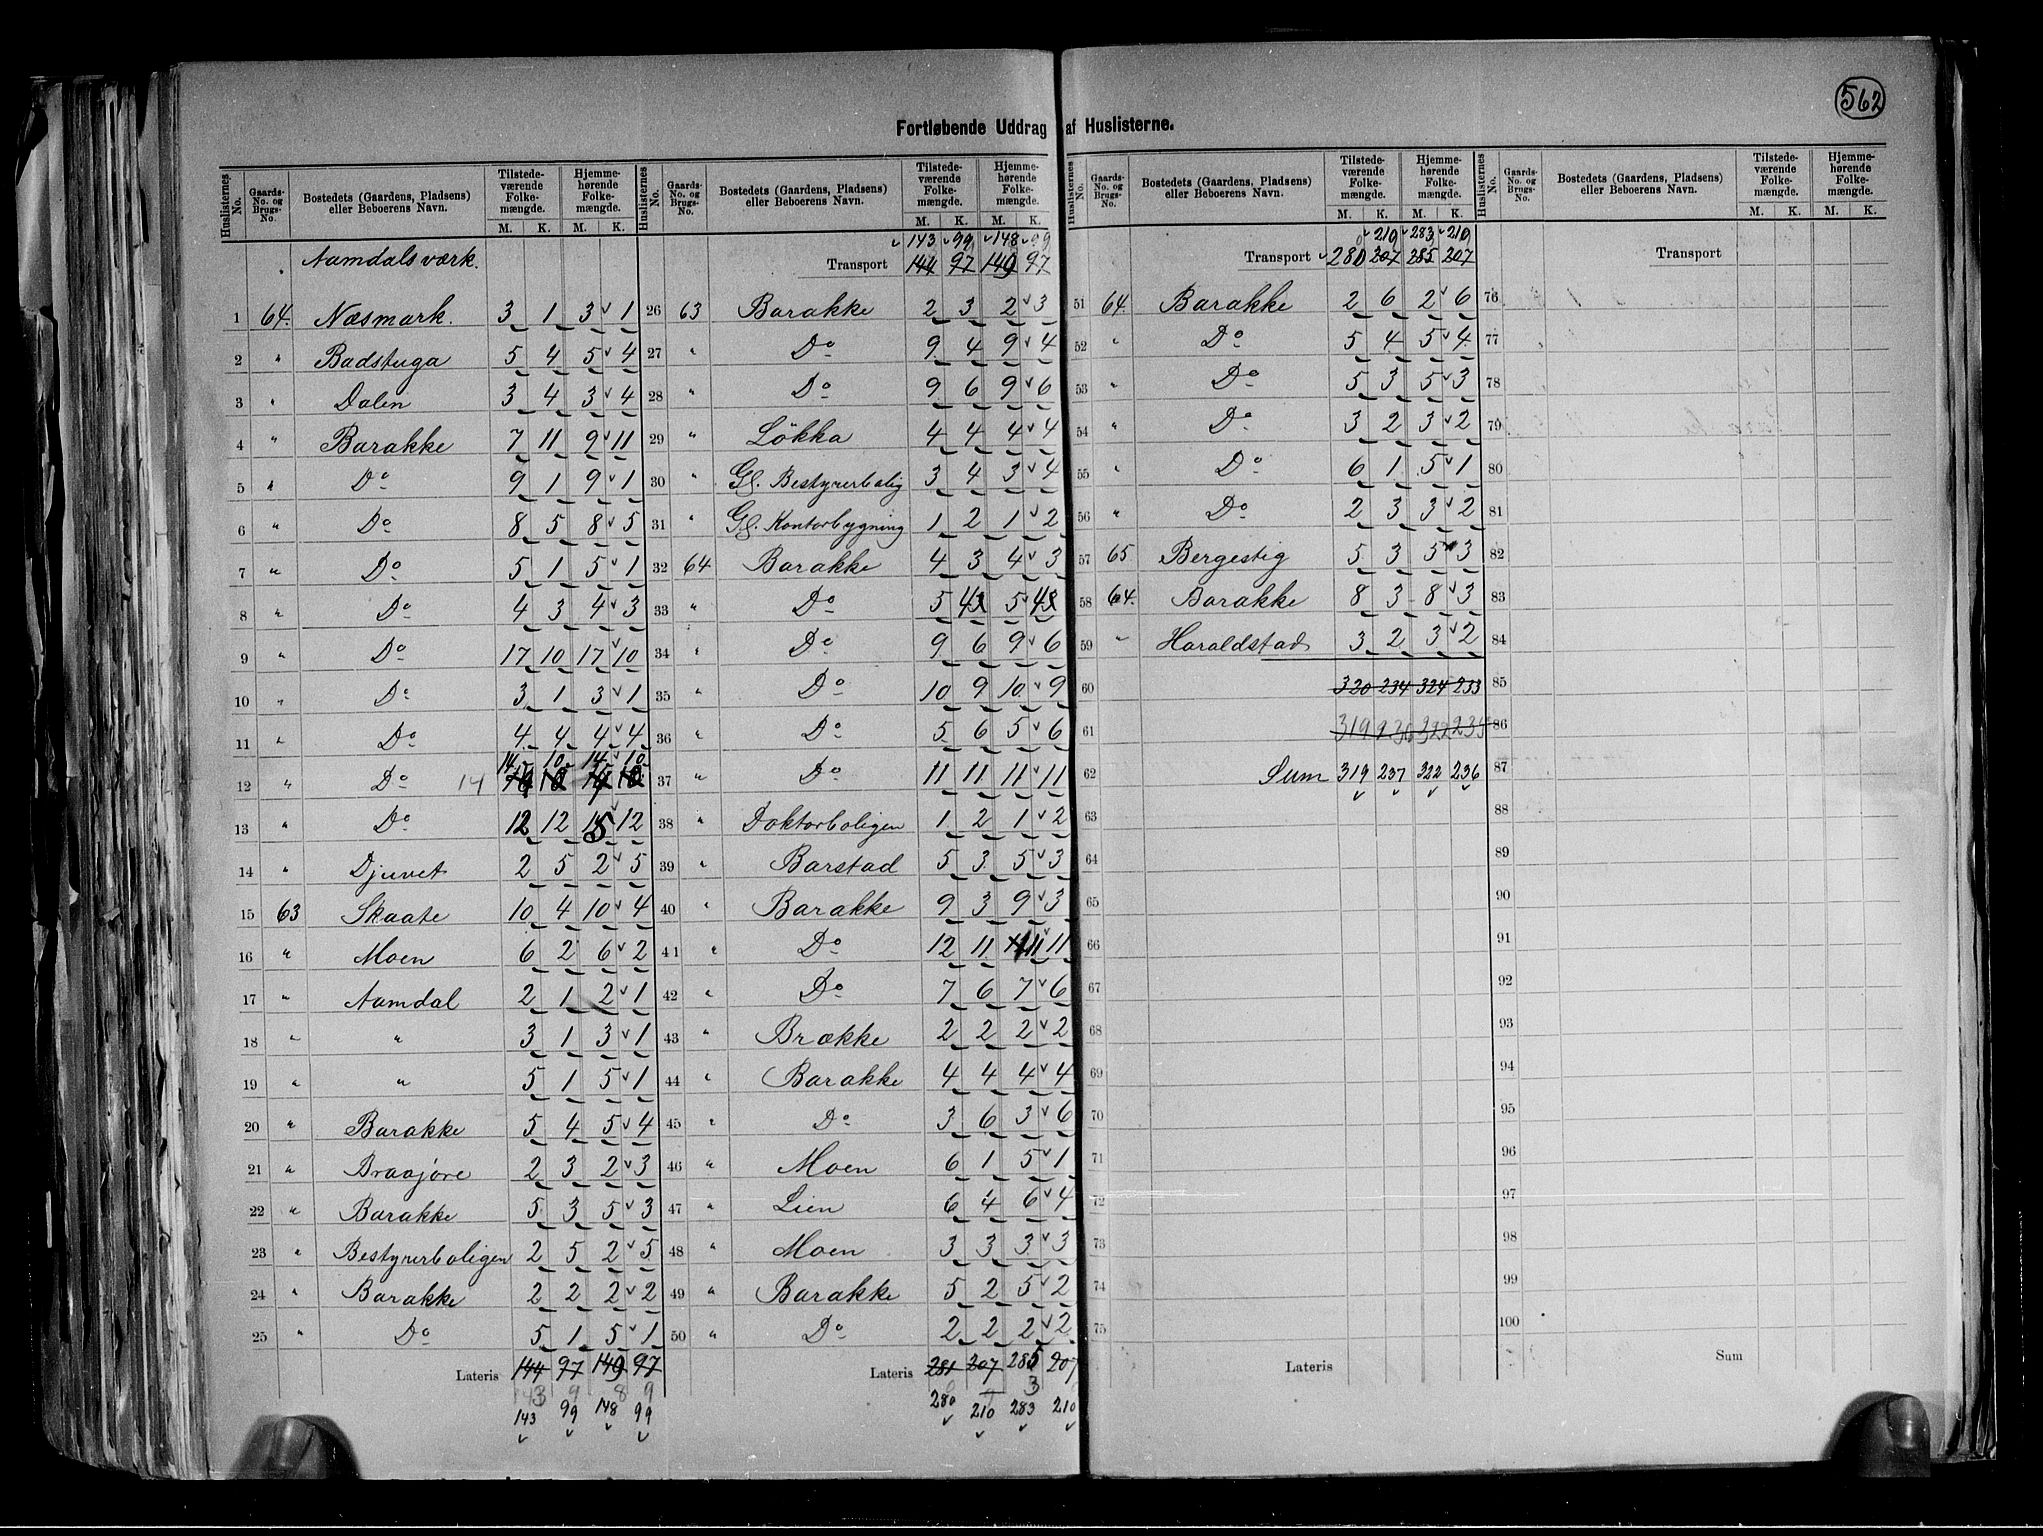 562
Fortløbende Uddrag af Huslisterne.
Huslisternes No. | Gaards-No. og Brugs-No. | Bostedets (Gaardens, Pladsens) eller Beboerens Navn. | Tilstede-værende Folke-mængde. M. K. | Hjemme-hørende Folke-mængde. M. K.
Aamdals værk.
1 64. Næsmark. 3 1 3 1
2 " Badstuga 5 4 5 4
3 " Dalen 3 4 3 4
4 " Barakke 7 11 9 11
5 " Do 9 1 9 1
6 " Do 8 5 8 5
7 " Do 5 1 5 1
8 " Do 4 3 4 3
9 " Do 17 10 17 10
10 " Do 3 1 3 1
11 " Do 4 4 4 4
12 " Do 14 14 10 14 10
13 " Do 12 12 15 12
14 " Djuvet 2 5 2 5
15 63 Skaate 10 4 10 4
16 " Moen 6 2 6 2
17 " Aamdal 2 1 2 1
18 " " 3 1 3 1
19 " " 5 1 5 1
20 " Barakke 5 4 5 4
21 " Braajøre 2 3 2 3
22 " Barakke 5 3 5 3
23 " Bestyrerboligen 2 5 2 5
24 " Barakke 2 2 2 2
25 " Do 5 1 5 1
Lateris 144 97 149 97
143 9 8 9
143 99 148 99
Huslisternes No. | Gaards-No. og Brugs-No. | Bostedets (Gaardens, Pladsens) eller Beboerens Navn. | Tilstede-værende Folke-mængde. M. K. | Hjemme-hørende Folke-mængde. M. K.
143 99 148 99
Transport 144 97 149 97
26 63 Barakke 2 3 2 3
27 " Do 9 4 9 4
28 " Do 9 6 9 6
29 " Lökka 4 4 4 4
30 " Gl. Bestyrerbolig 3 4 3 4
31 " Gl. Kontorbygning 1 2 1 2
32 64 Barakke 4 3 4 3
33 " Do 5 4 5 4
34 " Do 9 6 9 6
35 " Do 10 9 10 9
36 " Do 5 6 5 6
37 " Do 11 11 11 11
38 " Doktorboligen 1 2 1 2
39 " Barstad 5 3 5 3
40 " Barakke 9 3 9 3
41 " Do 12 11 11 11
42 " Do 7 6 7 6
43 " Brække 2 2 2 2
44 " Barakke 4 4 4 4
45 " Do 3 6 3 6
46 " Moen 6 1 5 1
47 " Lien 6 4 6 4
48 " Moen 3 3 3 3
49 " Barakke 5 2 5 2
50 " Do 2 2 2 2
Lateris 281 207 285 207
3
280 210 283 210
Huslisternes No. | Gaards-No. og Brugs-No. | Bostedets (Gaardens, Pladsens) eller Beboerens Navn. | Tilstede-værende Folke-mængde. M. K. | Hjemme-hørende Folke-mængde. M. K.
0 210 283 210
Transport 281 207 285 207
51 64. Barakke 2 6 2 6
52 " Do 5 4 5 4
53 " Do 5 3 5 3
54 " Do 3 2 3 2
55 " Do 6 1 5 1
56 " Do 2 3 3 2
57 65 Bergestig 5 3 5 3
58 64. Barakke 8 3 8 3
59 " Haraldstad 3 2 3 2
60 320 234 324 233
61 319 236 322 235
62 Sum 319 237 322 236
63
64
65
66
67
68
69
70
71
72
73
74
75
Lateris
Huslisternes No. | Gaards-No. og Brugs-No. | Bostedets (Gaardens, Pladsens) eller Beboerens Navn. | Tilstede-værende Folke-mængde. M. K. | Hjemme-hørende Folke-mængde. M. K.
Transport
76
77
78
79
80
81
82
83
84
85
86
87
88
89
90
91
92
93
94
95
96
97
98
99
100
Sum